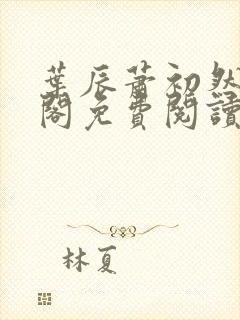 葉辰蕭初然
閣免費閱讀
林夏